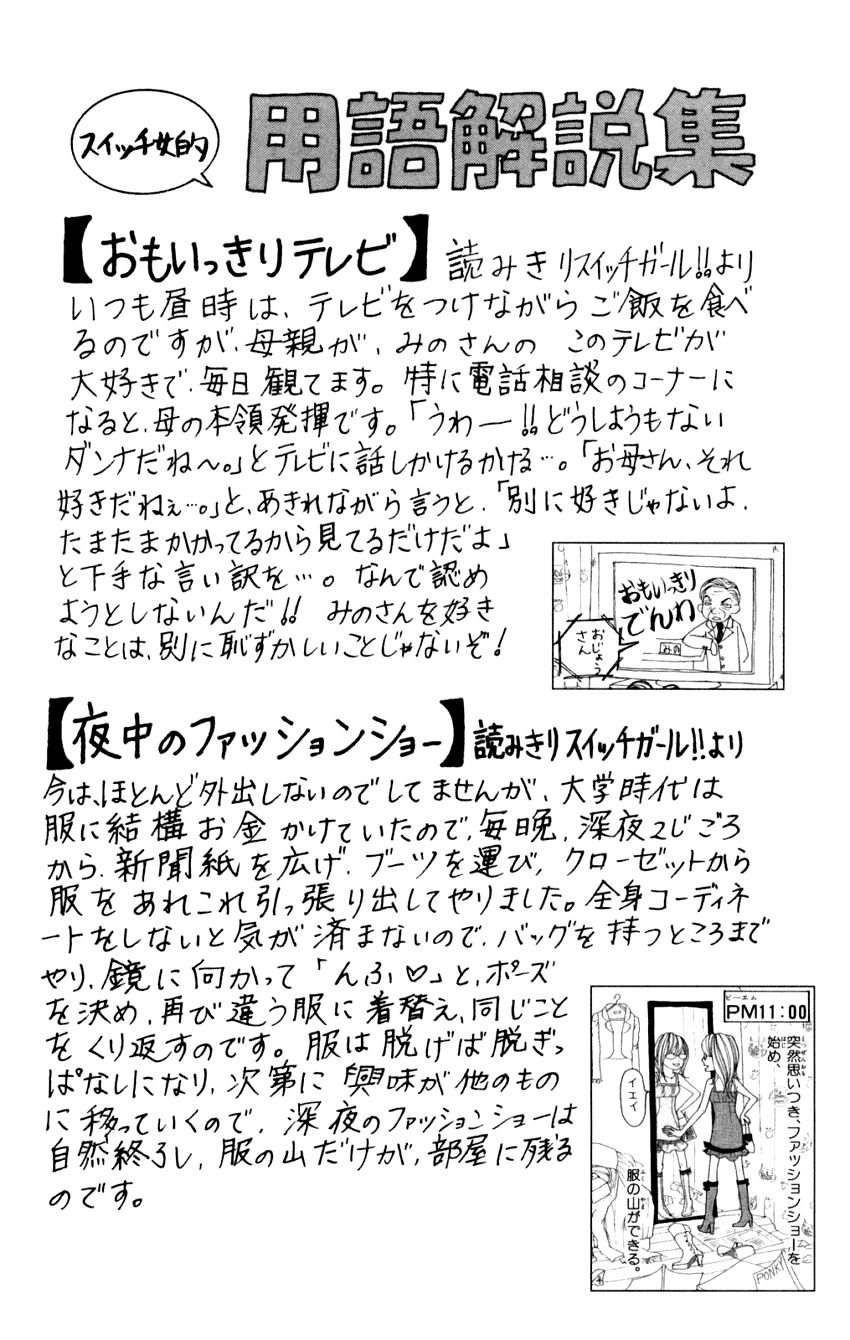 スイッチ女的
用語解説集
【おもいっきりテレビ】読みきりスイッチガール!!より
いつも昼時は、テレビをつけながらご飯を食べ
るのですが、母親が、みのさんの このテレビが
大好きで、毎日観てます。特に電話相談のコーナーに
なると、母の本領発揮です。「うわー!!どうしようもない
ダンナだね〜。」とテレビに話しかけるかける…。「お母さん、それ
好きだねぇ…。」と、あきれながら言うと、「別に好きじゃないよ、
たまたまかかってるから見てるだけだよ」
と下手な言い訳を…。なんで認め
ようとしないんだ!! みのさんを好き
なことは、別に恥ずかしいことじゃないぞ!
おもいっきり
でんわ
おじょう
さん
みの
【夜中のファッションショー】読みきりスイッチガール!!より
今は、ほとんど外出しないのでしてませんが、大学時代は
服に結構お金かけていたので、毎晩、深夜2じごろ
から、新聞紙を広げ、ブーツを運び、クローゼットから
服をあれこれ引っ張り出してやりました。全身コーディネ
ートをしないと気が済まないので、バッグを持つところまで
やり、鏡に向かって「んふ♡」と、ポーズ
を決め、再び違う服に着替え、同じこと
をくり返すのです。服は脱げば脱ぎっ
ぱなしになり、次第に興味が他のもの
に移っていくので、深夜のファッションショーは
自然終了し、服の山だけが、部屋に残る
のです。
ピーエム
PM11:00
突然思いつき、ファッションショーを
始め、
イエイ
服の山ができる。
PONKY